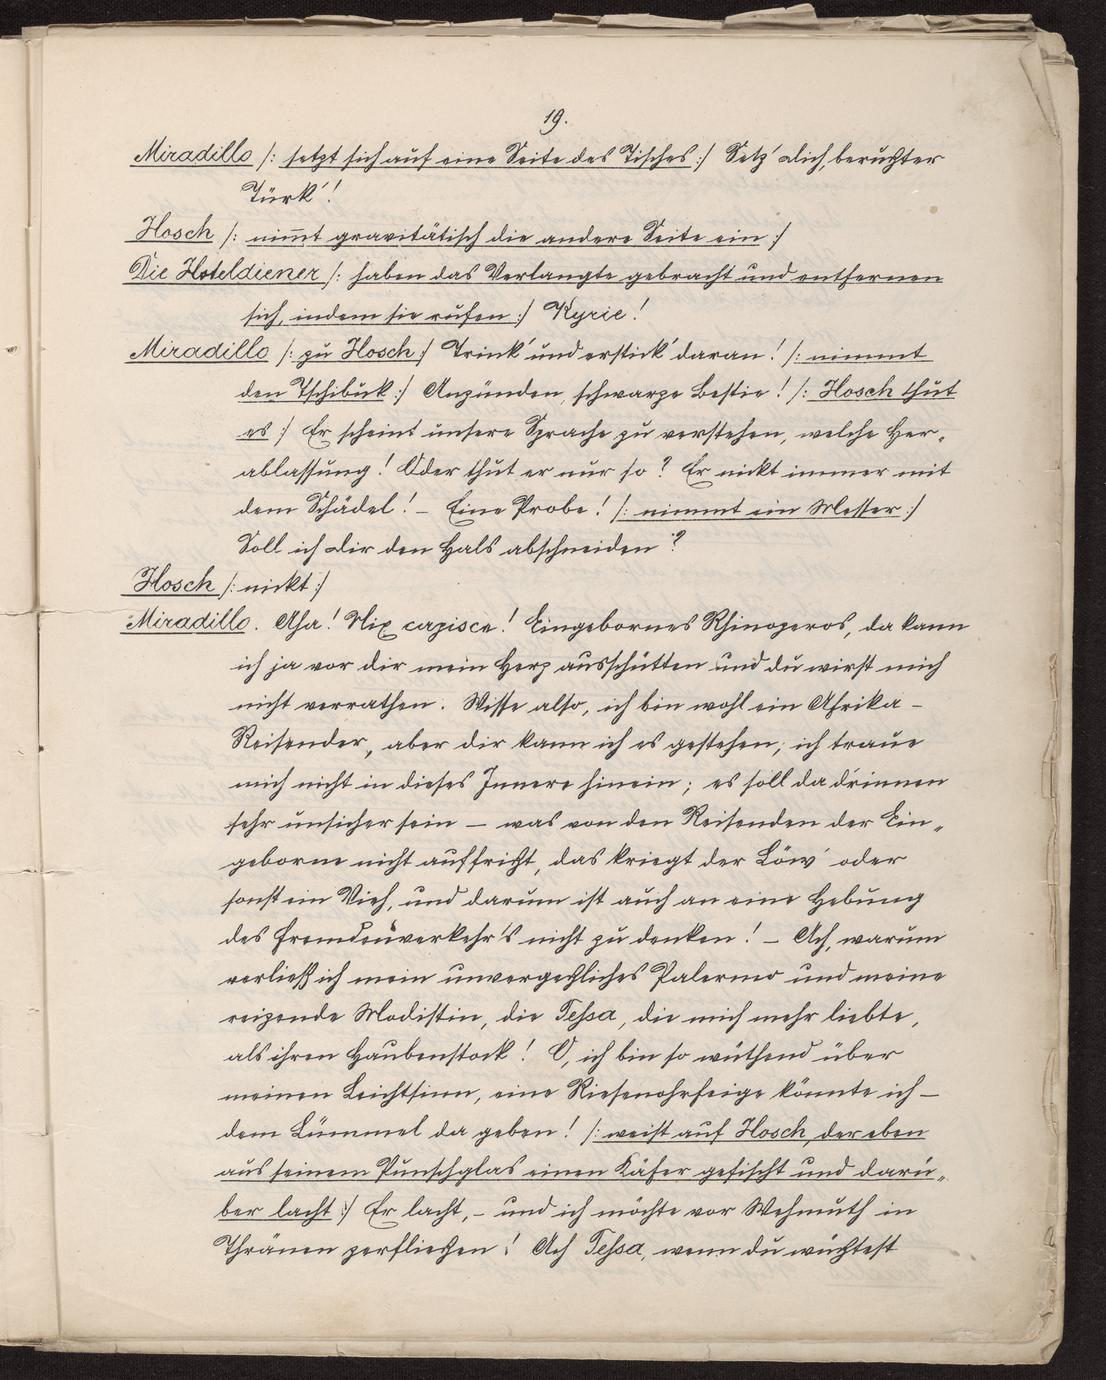 19.
Miradillo /: setzt sich auf eine Seite des Tisches :/ Setz' dich, berußter
Türk'!
Hosch /: nim̅t gravitätisch die andere Seite ein :/
Die Hoteldiener /: haben das Verlangte gebracht und entfernen
sich, indem sie rufen :/ Kyrie!
Miradillo /: zu Hosch :/ Trink' und erstick' daran! /: nimmt
den Tschibuk :/ Anzünden, schwarze Bestie! /: Hosch thut
es :/ Er scheint unsere Sprache zu verstehen, welche Her-
ablassung! Oder thut er nur so? Er nickt immer mit
dem Schädel! – Eine Probe! /: nimmt ein Messer :/
Soll ich dir den Hals abschneiden?
Hosch /: nickt :/
Miradillo. Aha! Nix capisce! Eingebornes Rhinozeros, da kann
ich ja vor dir mein Herz ausschütten und du wirst mich
nicht verrathen. Wisse also, ich bin wohl ein Afrika –
Reisender, aber dir kann ich es gestehen, ich traue
mich nicht in dieses Innere hinein; es soll da drinnen
sehr unsicher sein – was von den Reisenden der Ein-
geborne nicht auffrißt, das kriegt der Löw' oder
sonst ein Vieh, und darum ist auch an eine Hebung
des Fremdenverkehr's nicht zu denken! – Ach, warum
verließ ich mein unvergeßliches Palermo und meine
reizende Modistin, die Tessa, die mich mehr liebte,
als ihren Haubenstock! O, ich bin so wüthend über
meinen Leichtsinn, eine Riesenohrfeige könnte ich –
dem Lümmel da geben! /: weist auf Hosch, der eben
aus seinem Punschglas einen Käfer gefischt und darü-
ber lacht :/ Er lacht, – und ich möchte vor Wehmuth in
Thränen zerfließen! Ach Tessa, wenn du wüßtest